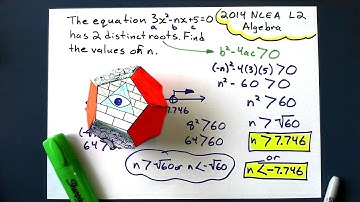 The equation 3x²-nx+5=0
a b c
has 2 distinct roots. Find
the values of n.
2014 NCEA L2
Algebra
b²-4ac>0
(-n)²-4(3)(5)>0
n²-60>0
n²>60
n>√60
n>7.746
or
n<-7.746
7.746
8²>60
64>60
64>
n>√60 or n<-√60
Sharpie